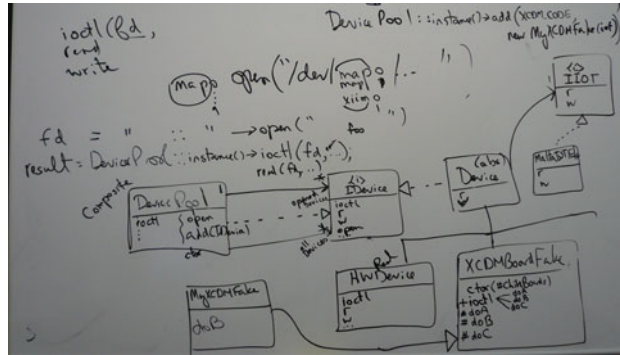 ioctl(fd,
read
write
DevicePool::instance()->add(XCDM.CODE,
new MyXCDMFake(int)
map0 open("/dev/map0 ... ")
map1
xiimo
fd = " :: " ->open(" foo ")
result = DevicePool::instance()->ioctl(fd,"...);
read(fd,...);
Composite
DevicePool
ioctl
open
add(
ctor
<i>
IDevice
ioctl
r
w
open
all
Devices
(abs)
Device
r
<i>
IIOT
r
w
r
w
Real
HWDevice
ioctl
r
w
XCDMBoardFake
ctor(
+ioctl
doA
doB
doC
#doA
#doB
#doC
MyXCDMFake
doB